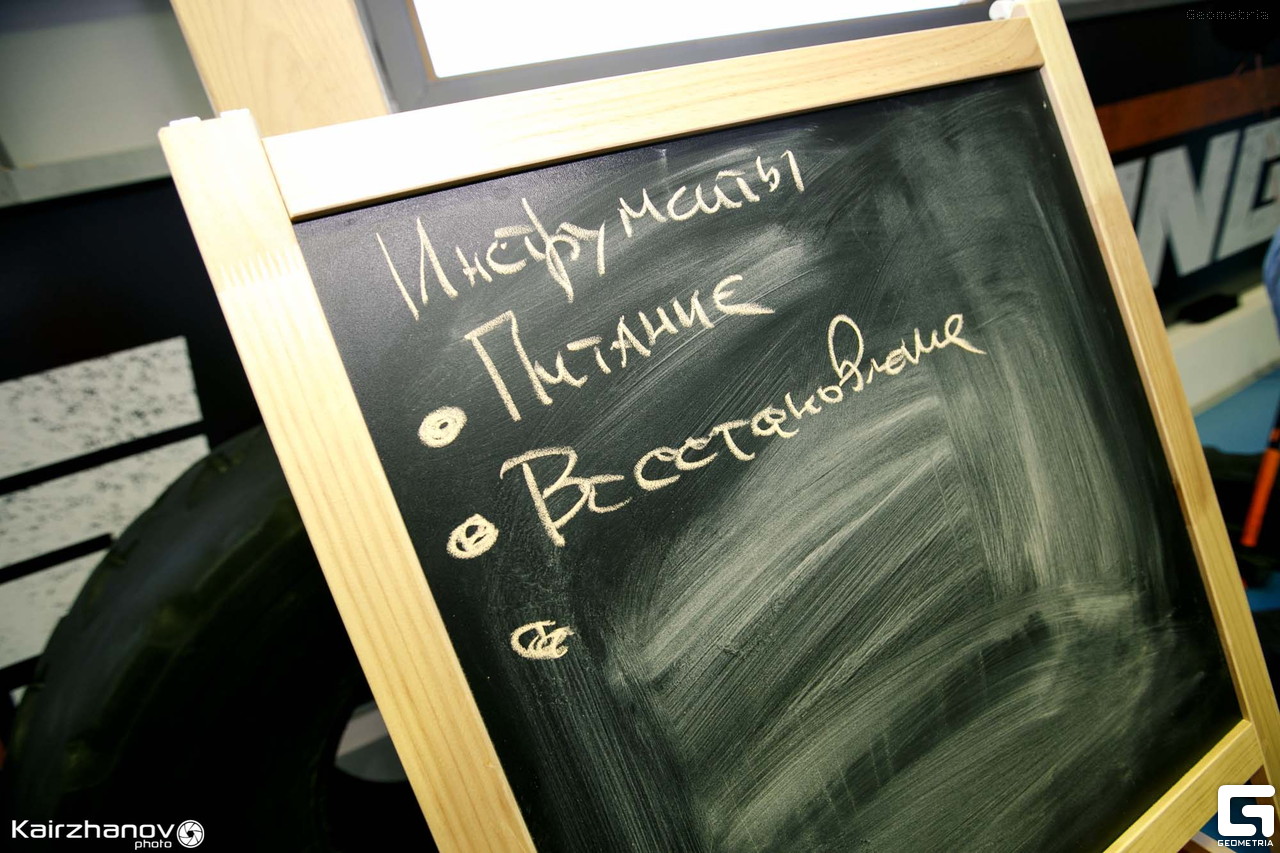 Geometria
Инструменты
Питание
Восстановление
Kairzhanov
photo
GEOMETRIA